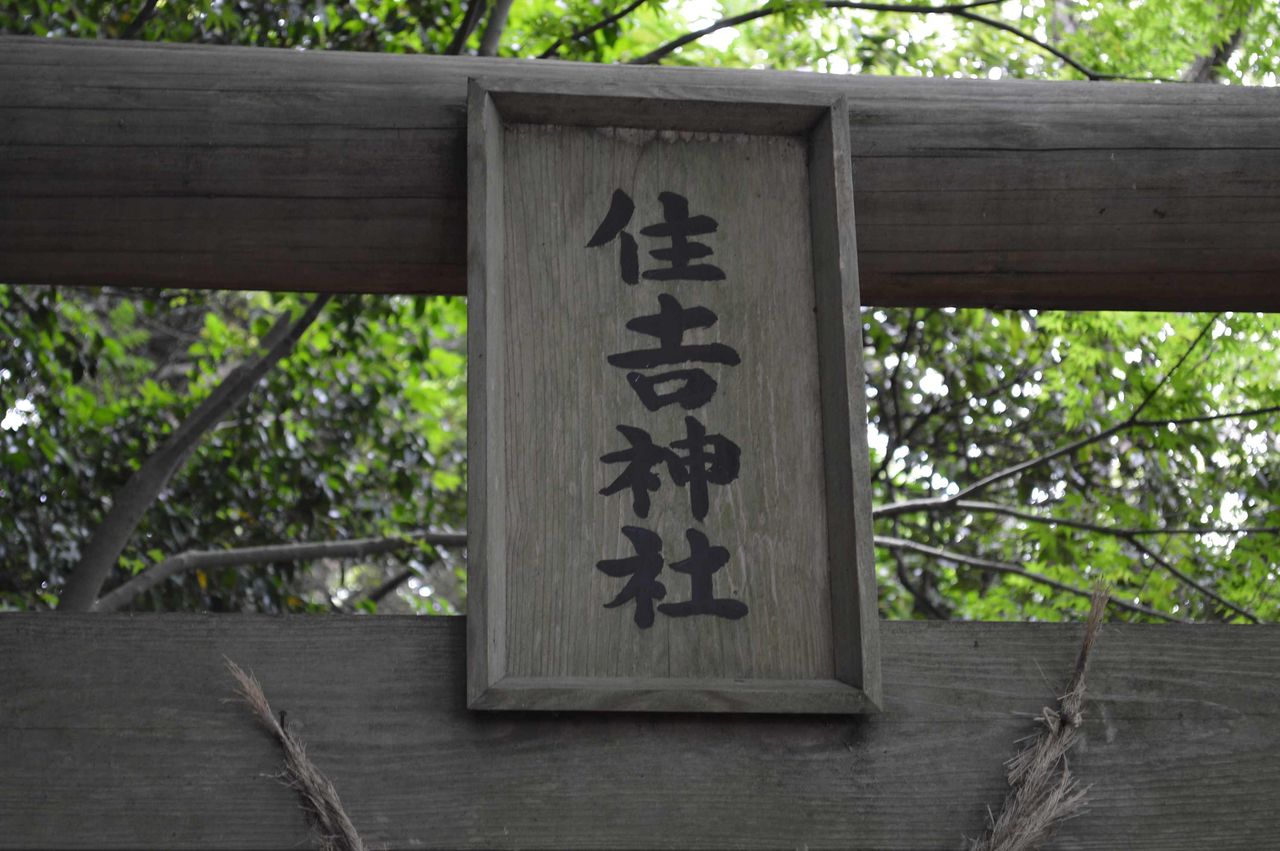 住吉神社